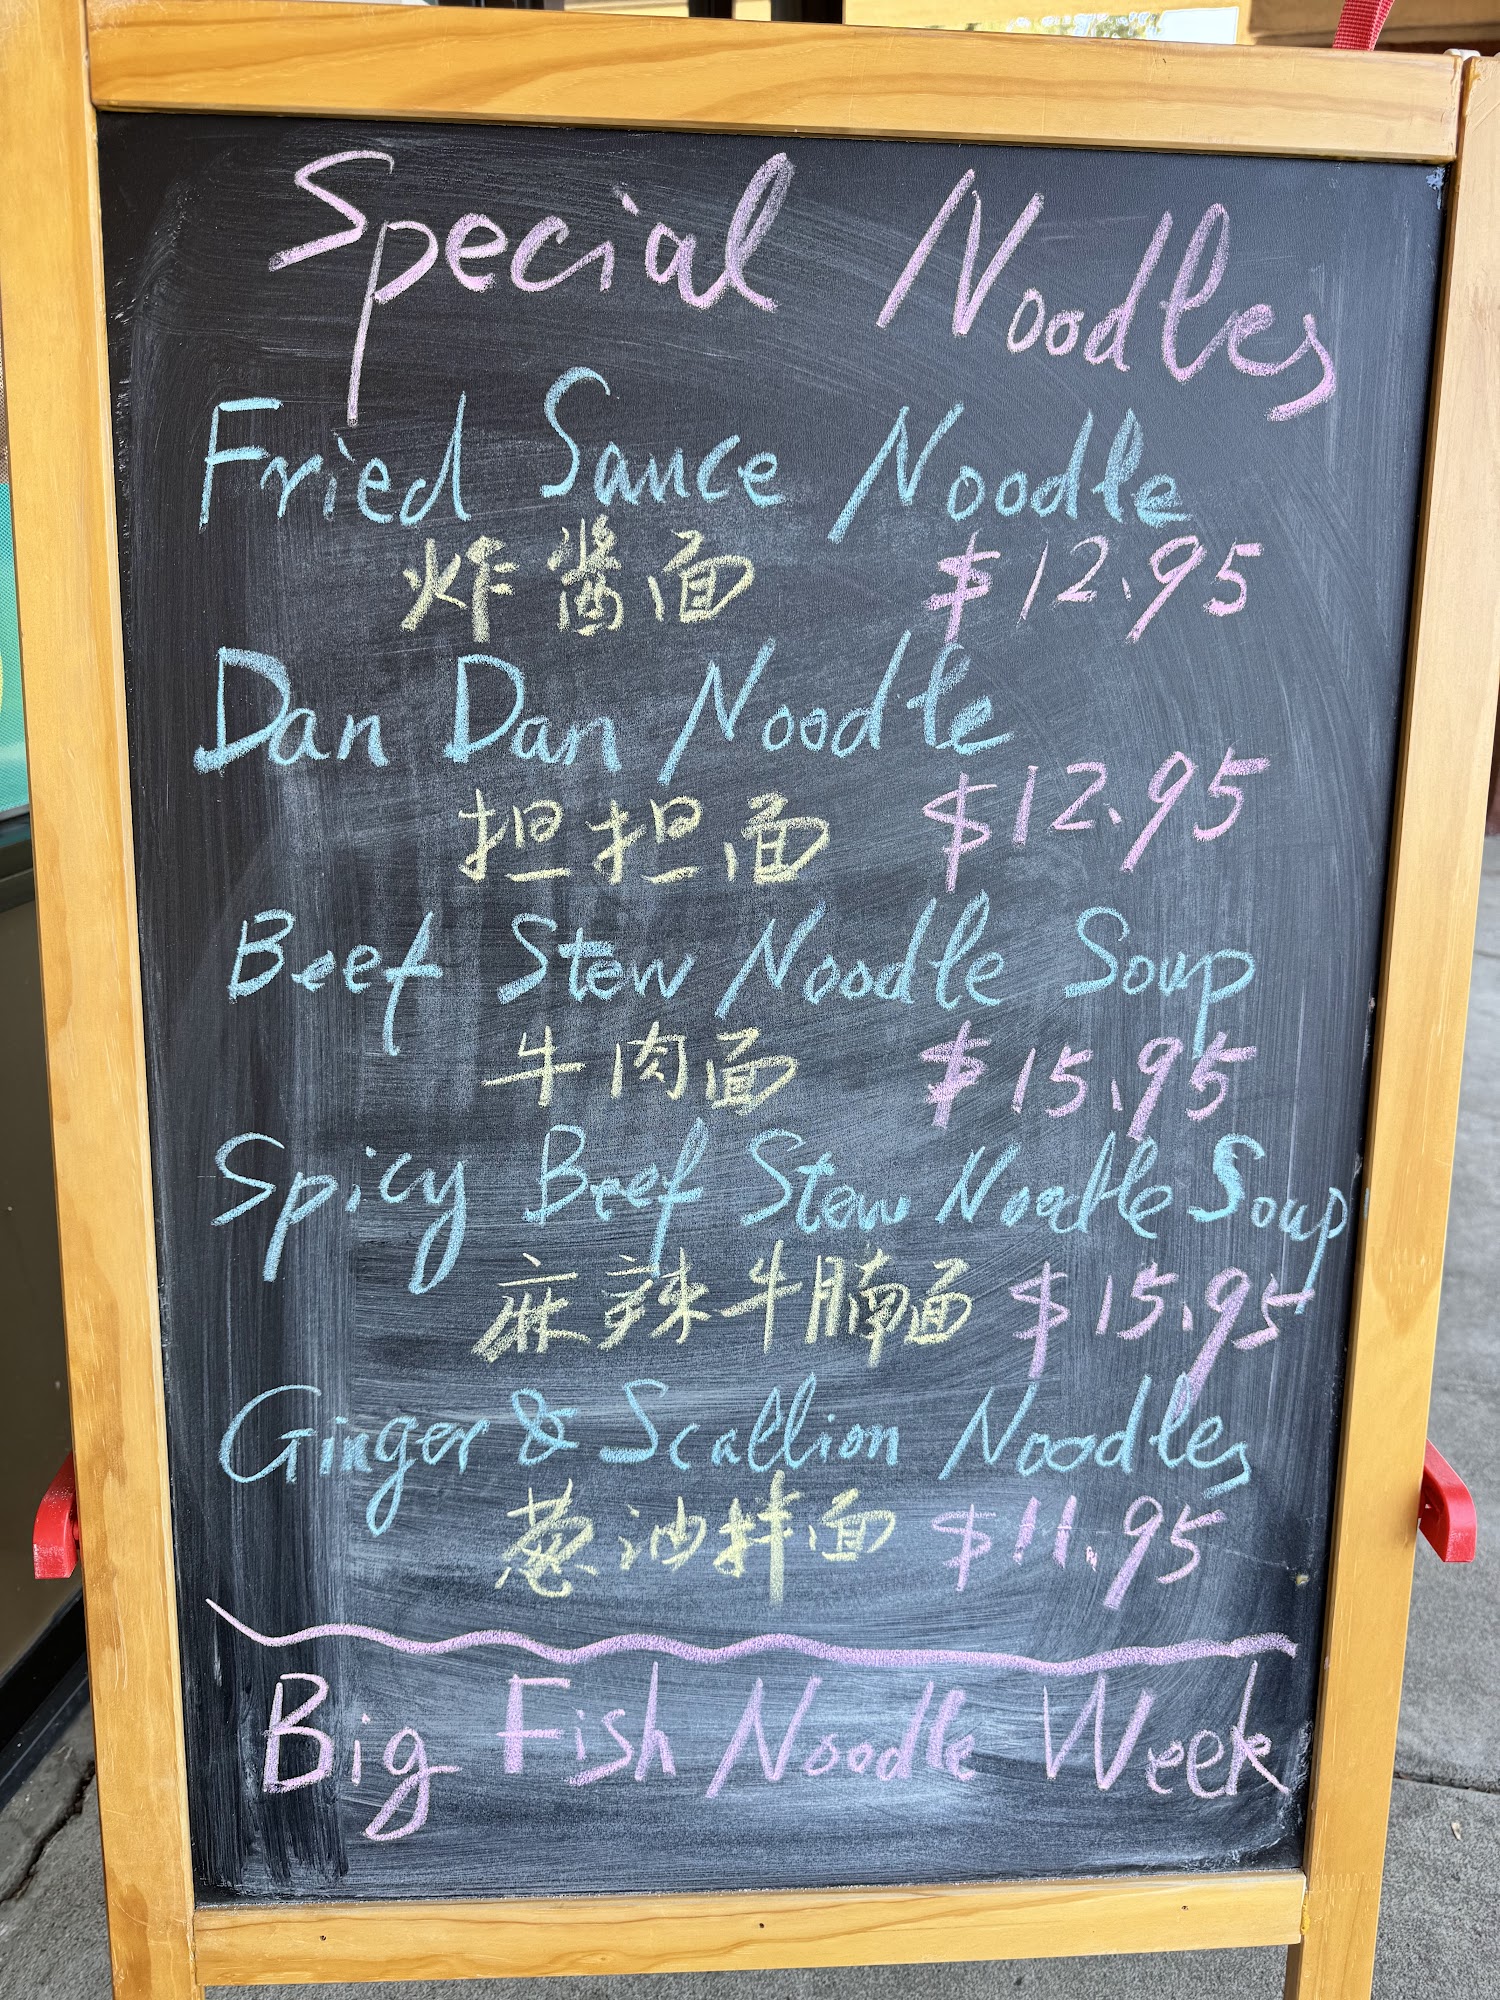 Special Noodles
Fried Sauce Noodle
炸酱面 $12.95
Dan Dan Noodle
担担面 $12.95
Beef Stew Noodle Soup
牛肉面 $15.95
Spicy Beef Stew Noodle Soup
麻辣牛腩面 $15.95
Ginger & Scallion Noodles
葱油拌面 $11.95
Big Fish Noodle Week